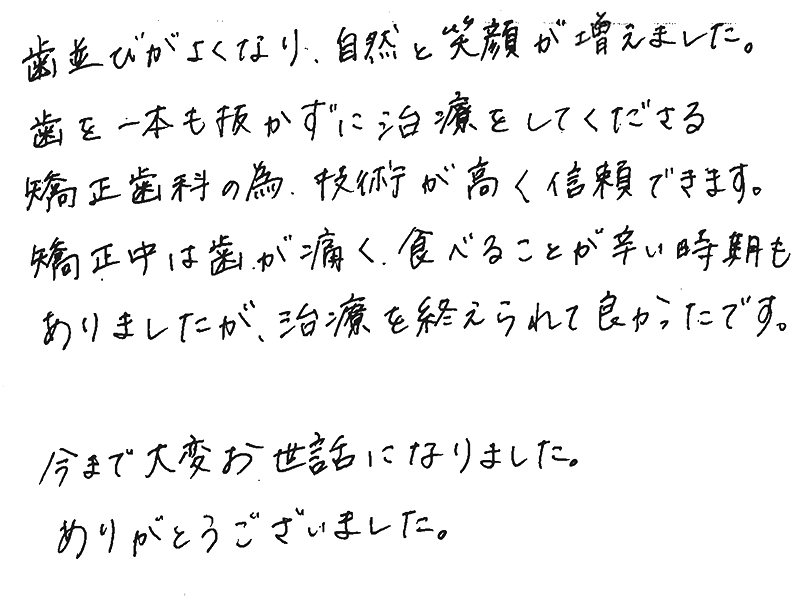 歯並びがよくなり、自然と笑顔が増えました。
歯を一本も抜かずに治療をしてくださる
矯正歯科の為、技術が高く信頼できます。
矯正中は歯が痛く、食べることが辛い時期も
ありましたが、治療を終えられて良かったです。
今まで大変お世話になりました。
ありがとうございました。